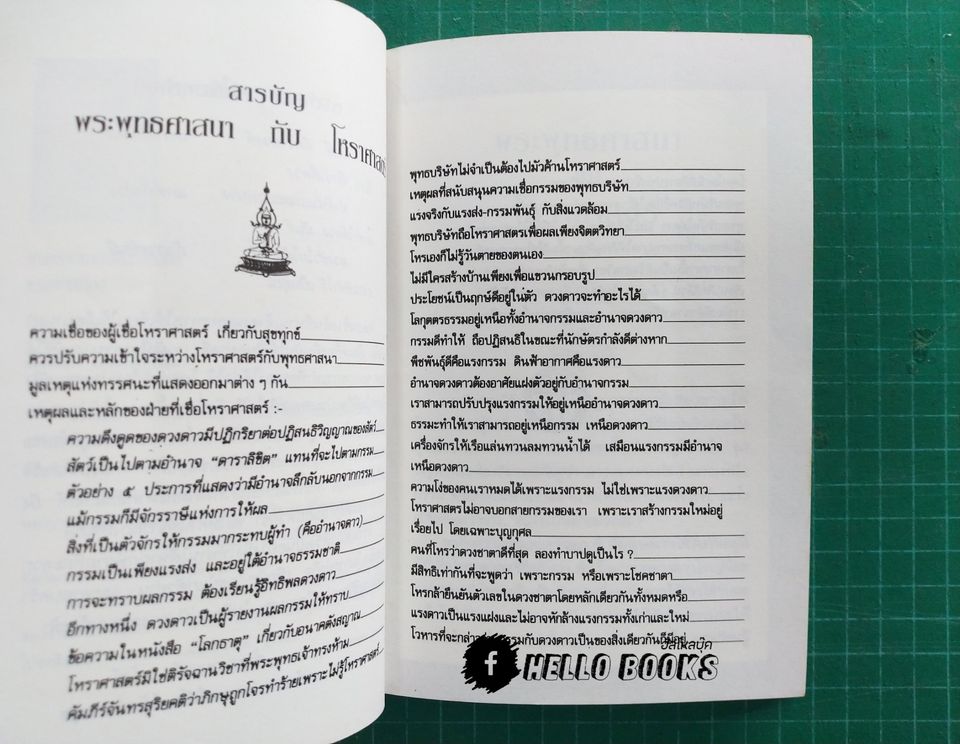 สารบัญ
พระพุทธศาสนา กับ โหราศาสตร์
ความเชื่อของผู้เชื่อโหราศาสตร์ เกี่ยวกับสุขทุกข์
ควรปรับความเข้าใจระหว่างโหราศาสตร์กับพุทธศาสนา
มูลเหตุแห่งทรรศนะที่แสดงออกมาต่าง ๆ กัน
เหตุผลและหลักของฝ่ายที่เชื่อโหราศาสตร์ :-
ความดึงดูดของดวงดาวมีปฏิกริยาต่อปฏิสนธิวิญญาณของสัตว์
สัตว์เป็นไปตามอำนาจ "ดาราลิขิต" แทนที่จะไปตามกรรม
ตัวอย่าง ๕ ประการที่แสดงว่ามีอำนาจลึกลับนอกจากกรรม
แม้กรรมก็มีจักรราษีแห่งการให้ผล
สิ่งที่เป็นตัวจักรให้กรรมมากระทบผู้ทำ (คืออำนาจดาว)
กรรมเป็นเพียงแรงส่ง และอยู่ใต้อำนาจธรรมชาติ
การจะทราบผลกรรม ต้องเรียนรู้อิทธิพลดวงดาว
อีกทางหนึ่ง ดวงดาวเป็นผู้รายงานผลกรรมให้ทราบ
ข้อความในหนังสือ "โลกธาตุ" เกี่ยวกับอนาคตังสญาณ
โหราศาสตร์มิใช่ติรัจฉานวิชาที่พระพุทธเจ้าทรงห้าม
คัมภีร์จันทรสุริยคติว่าภิกษุถูกโจรทำร้ายเพราะไม่รู้โหราศาสตร์
พุทธบริษัทไม่จำเป็นต้องไปมัวค้านโหราศาสตร์
เหตุผลที่สนับสนุนความเชื่อกรรมของพุทธบริษัท
แรงจริงกับแรงส่ง-กรรมพันธุ์ กับสิ่งแวดล้อม
พุทธบริษัทถือโหราศาสตรเพื่อผลเพียงจิตตวิทยา
โหรเองก็ไม่รู้วันตายของตนเอง
ไม่มีใครสร้างบ้านเพียงเพื่อแขวนกรอบรูป
ประโยชน์เป็นฤกษ์ดีอยู่ในตัว ดวงดาวจะทำอะไรได้
โลกุตตรธรรมอยู่เหนือทั้งอำนาจกรรมและอำนาจดวงดาว
กรรมดีทำให้ ถือปฏิสนธิในขณะที่นักษัตรกำลังดีต่างหาก
พืชพันธุ์ดีคือแรงกรรม ดินฟ้าอากาศคือแรงดาว
อำนาจดวงดาวต้องอาศัยแฝงตัวอยู่กับอำนาจกรรม
เราสามารถปรับปรุงแรงกรรมให้อยู่เหนืออำนาจดวงดาว
ธรรมะทำให้เราสามารถอยู่เหนือกรรม เหนือดวงดาว
เครื่องจักรให้เรือแล่นทวนลมทวนน้ำได้ เสมือนแรงกรรมมีอำนาจ
เหนือดวงดาว
ความโง่ของคนเราหมดได้เพราะแรงกรรม ไม่ใช่เพราะแรงดวงดาว
โหราศาสตร์ไม่อาจบอกสายกรรมของเรา เพราะเราสร้างกรรมใหม่อยู่
เรื่อยไป โดยเฉพาะบุญกุศล
คนที่โหรว่าดวงชาตาดีที่สุด ลองทำบาปดูเป็นไร ?
มีสิทธิเท่ากันที่จะพูดว่า เพราะกรรม หรือเพราะโชคชาตา
โหรกล้ายืนยันตัวเลขในดวงชาตาโดยหลักเดียวกันทั้งหมดหรือ
แรงดาวเป็นแรงแฝงและไม่อาจหักล้างแรงกรรมทั้งเก่าและใหม่
โวหารที่จะกล่าว กรรมกับดวงดาวเป็นของสิ่งเดียวกันก็มีอยู่
ฮัลโหลบุ๊ค
f HELLO BOOKS